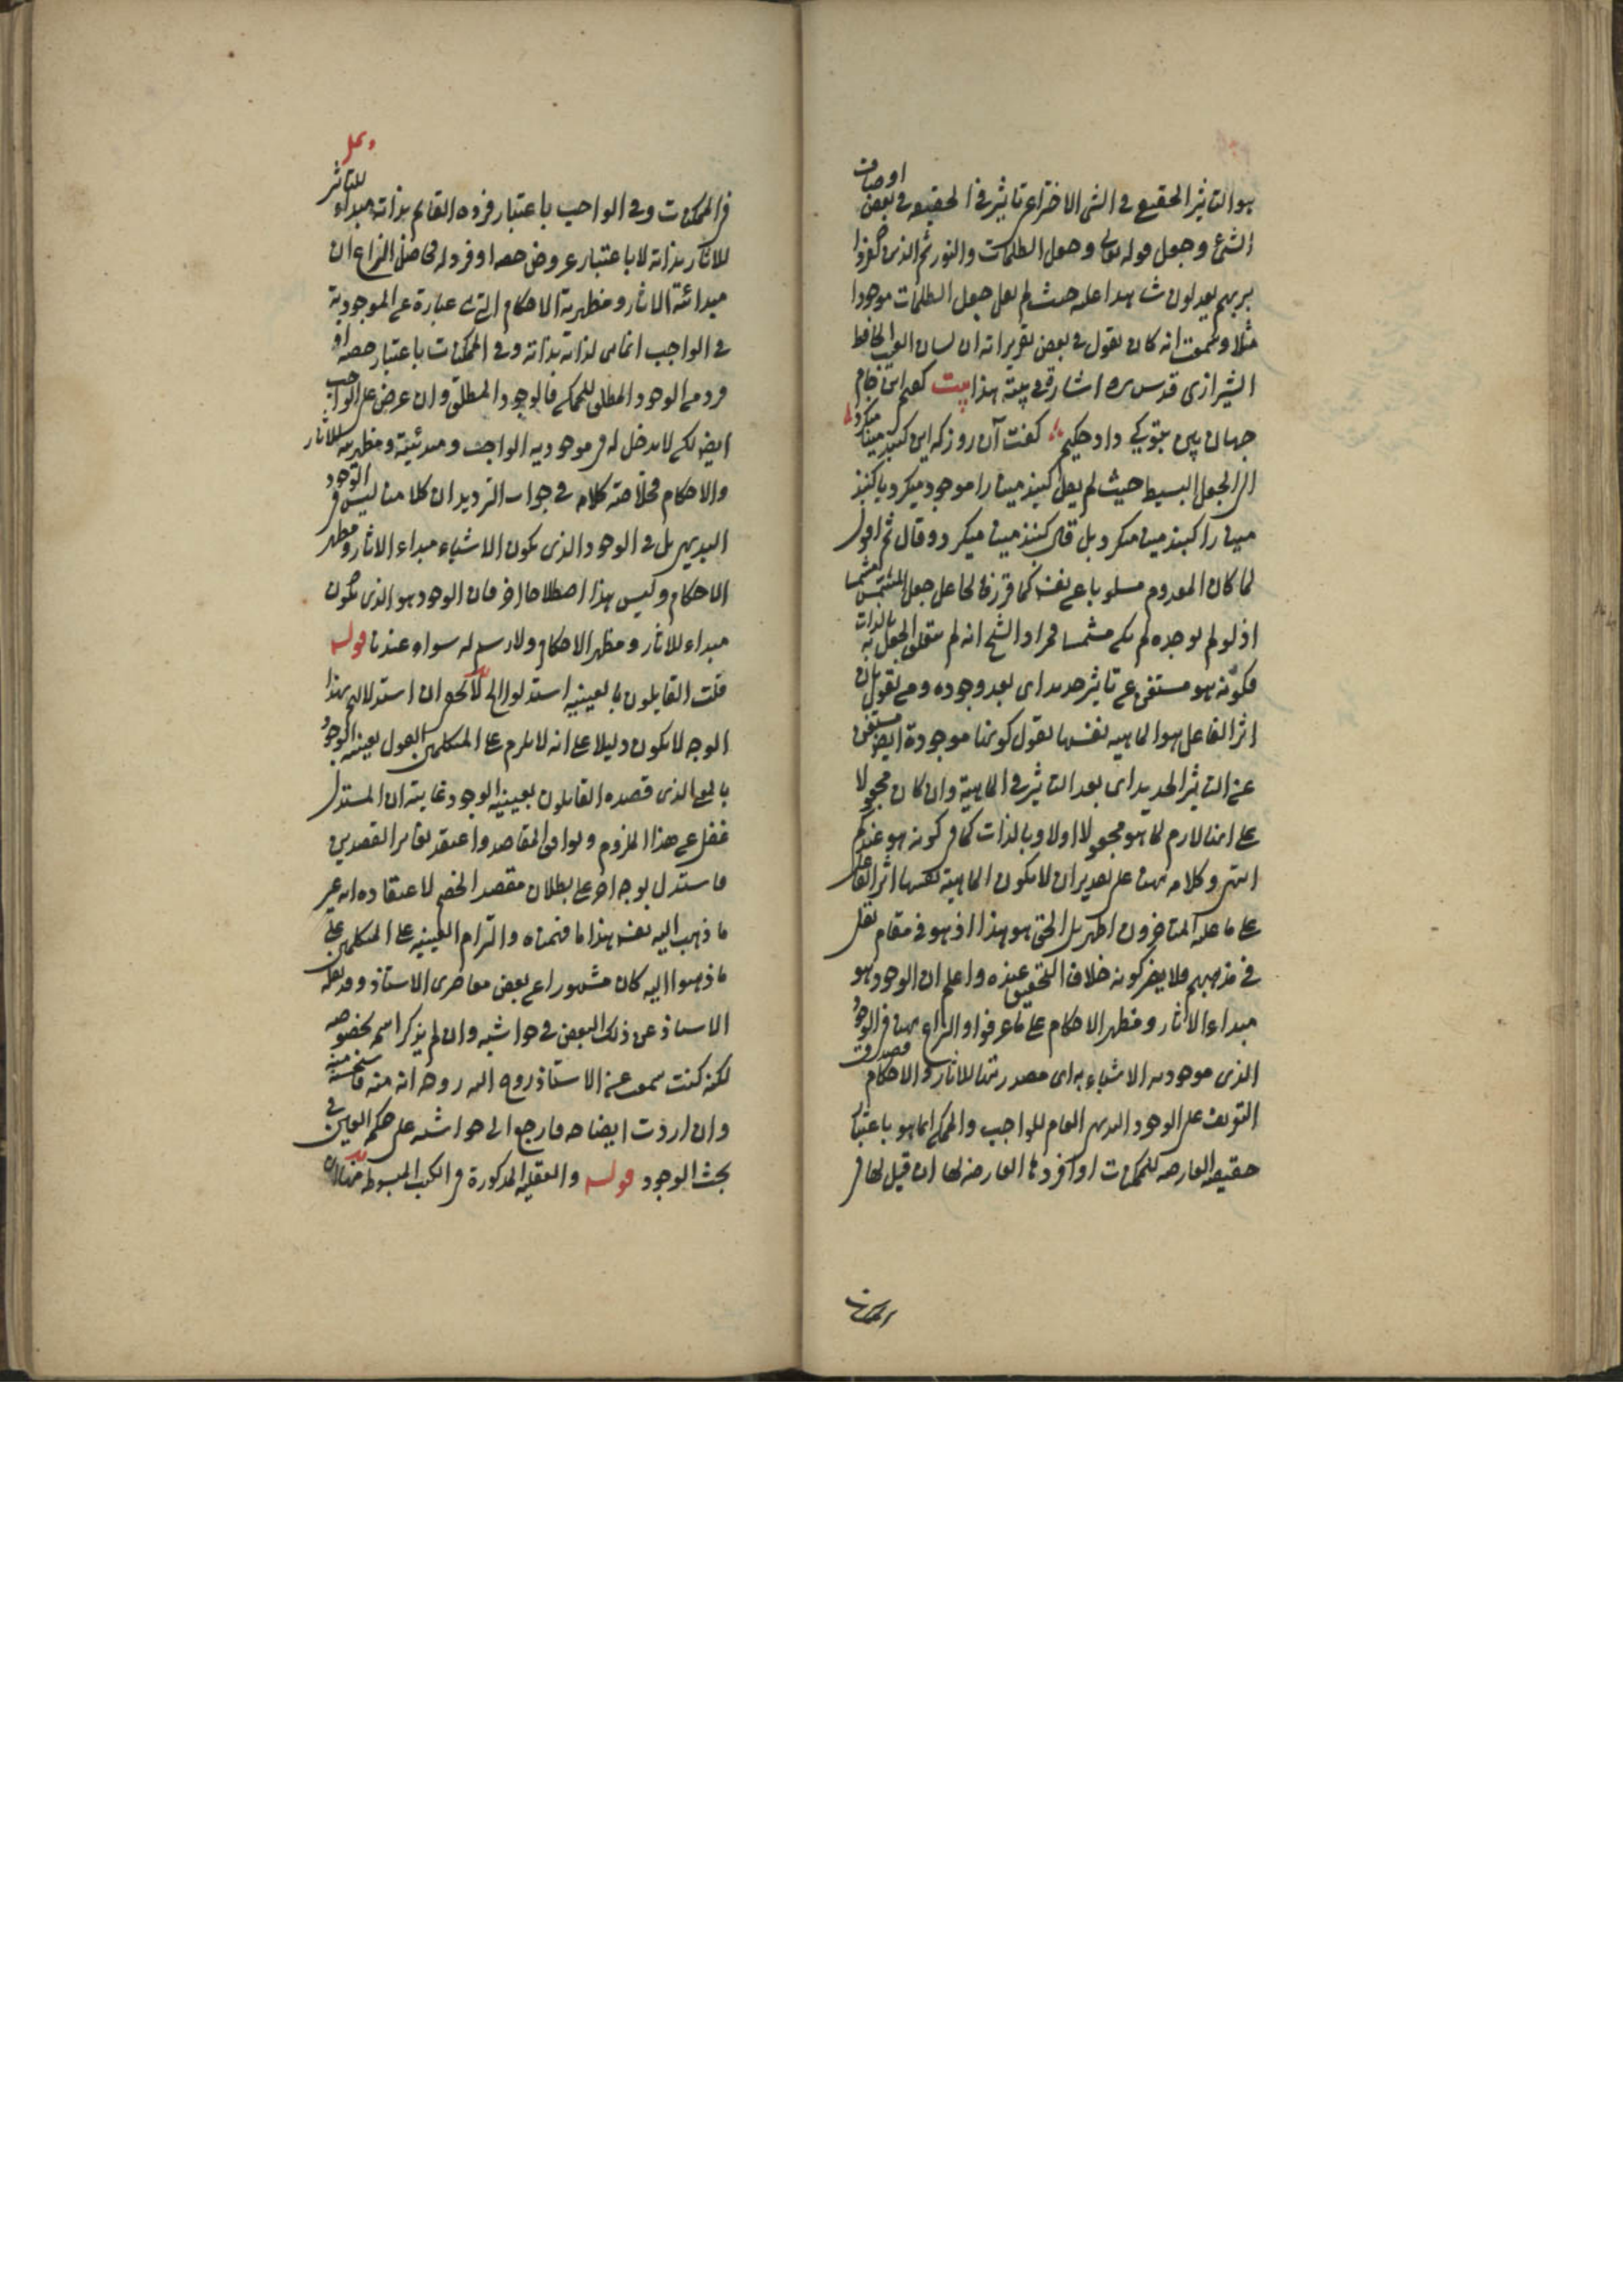 هو التاثير الحقيقى فى الشى الاختراع تاثير فى الحقيقه فى بعض اوصاف
الشئ وجعل قوله تعالى وجعل الظلمات والنور ثم الذين كفروا
بربهم يعدلون شاهدا عليه حيث لم يقل جعل الظلمات موجودا
مثلا وسمعت انه كان يقول فى بعض تقريراته ان لسان الغيب الحافظ
الشيرازى قدس سره اشار فى بيته هذا بيت كفتم اين جام
جهان بين بتو كى داد حكيم كفت آن روز كه اين كنبد مينا ميكرد
الى الجعل البسيط حيث لم يقل كنبد مينا را موجود ميكرد يا كنبد
مينا را كنبد مينا ميكرد بل قال كنبد مينا ميكرد وقال ثم اقول
لما كان المعدوم مسلوبا عن نفسه كما قرر فالجاعل جعل المشمش مشمشا
اذ لو لم يوجده لم يكن مشمشا فمراد الشيخ انه لم يتعلق الجعل بالذات به
فكونه هو مستغن عن تاثير جديد اى بعد وجوده ومن يقول بان
اثر الفاعل هو الماهيه نفسها يقول كونها موجودة ايضا مستغن
عن التاثير الجديد اى بعد التاثير فى الماهية وان كان مجعولا
على انها لازم لما هو مجعولا اولا وبالذات كما فى كونه هو عندكم
انتهى وكلامه هنا على تقدير ان لا يكون الماهية نفسها اثر الفاعل
على ما عليه المتاخرون اظهر بل الحق هو هذا اذ هو فى مقام نقل
فى مذهبهم ولا يضر كونه خلاف التحقيق عنده واعلم ان الوجود هو
مبداء الاثار ومظهر الاحكام على ما عرفوا والنزاع هنا فى الوجود
الذى موجوديه الاشياء به اى مصدريتها للاثار والاحكام فصدق
التعريف على الوجود البديهى العام للواجب والممكن انما هو باعتبار
حقيقته العارضه للممكنات او افرادها العارضه لها ان قيل لها فى
الممكنات
فى الممكنات وفى الواجب باعتبار فرده القائم بذاته مبداء للتاثير
للاثار بذاته لا باعتبار عروض حصه او فرد له فحاصل النزاع ان
مبدائية الاثار ومظهرية الاحكام التى هى عبارة عن الموجودية
فى الواجب انما هى لذاته بذاته وفى الممكنات باعتبار حصه او
فرد من الوجود المطلق للممكن فالوجود المطلق وان عرض على الواجب
ايضا لكن لا مدخل له فى موجوديه الواجب ومبدئيته ومظهريته للاثار
والاحكام فخلاصة كلامه فى جواب الترديد ان كلامنا ليس فى الوجود
البديهى بل فى الوجود الذى يكون الاشياء مبداء الاثار ومظهر
الاحكام وليس هذا اصطلاحا اخر فان الوجود هو الذى يكون
مبداء للاثار ومظهر الاحكام ولا رسم له سواه عندنا قوله
قلت القايلون بالعينيه استدلوا الخ لا يخفى ان استدلالهم بهذا
الوجه لا يكون دليلا على انه لا يلزم على المتكلمين القول بعينيه الوجود
بالمعنى الذى قصده القايلون بعينيه الوجود غايته ان المستدل
غفل عن هذا اللزوم وتوافق المقاصد واعتقد تغاير القصدين
فاستدل بوجه اخر على بطلان مقصد الخصم لاعتقاده انه غير
ما ذهب اليه نفسه هذا ما فهمناه والتزام العينيه على المتكلمين على
ما ذهبوا اليه كان مشهورا عن بعض معاصرى الاستاذ وقد نقله
الاستاذ عن ذلك البعض فى حواشيه وان لم يذكر اسمه بخصوصه
لكنه كنت سمعت عن الاستاذ روح الله روحه انه منه
وان اردت ايضاحه فارجع الى حواشيه على حكمه العين فى
بحث الوجود قوله والعقليه المذكورة فى الكتب المبسوطه